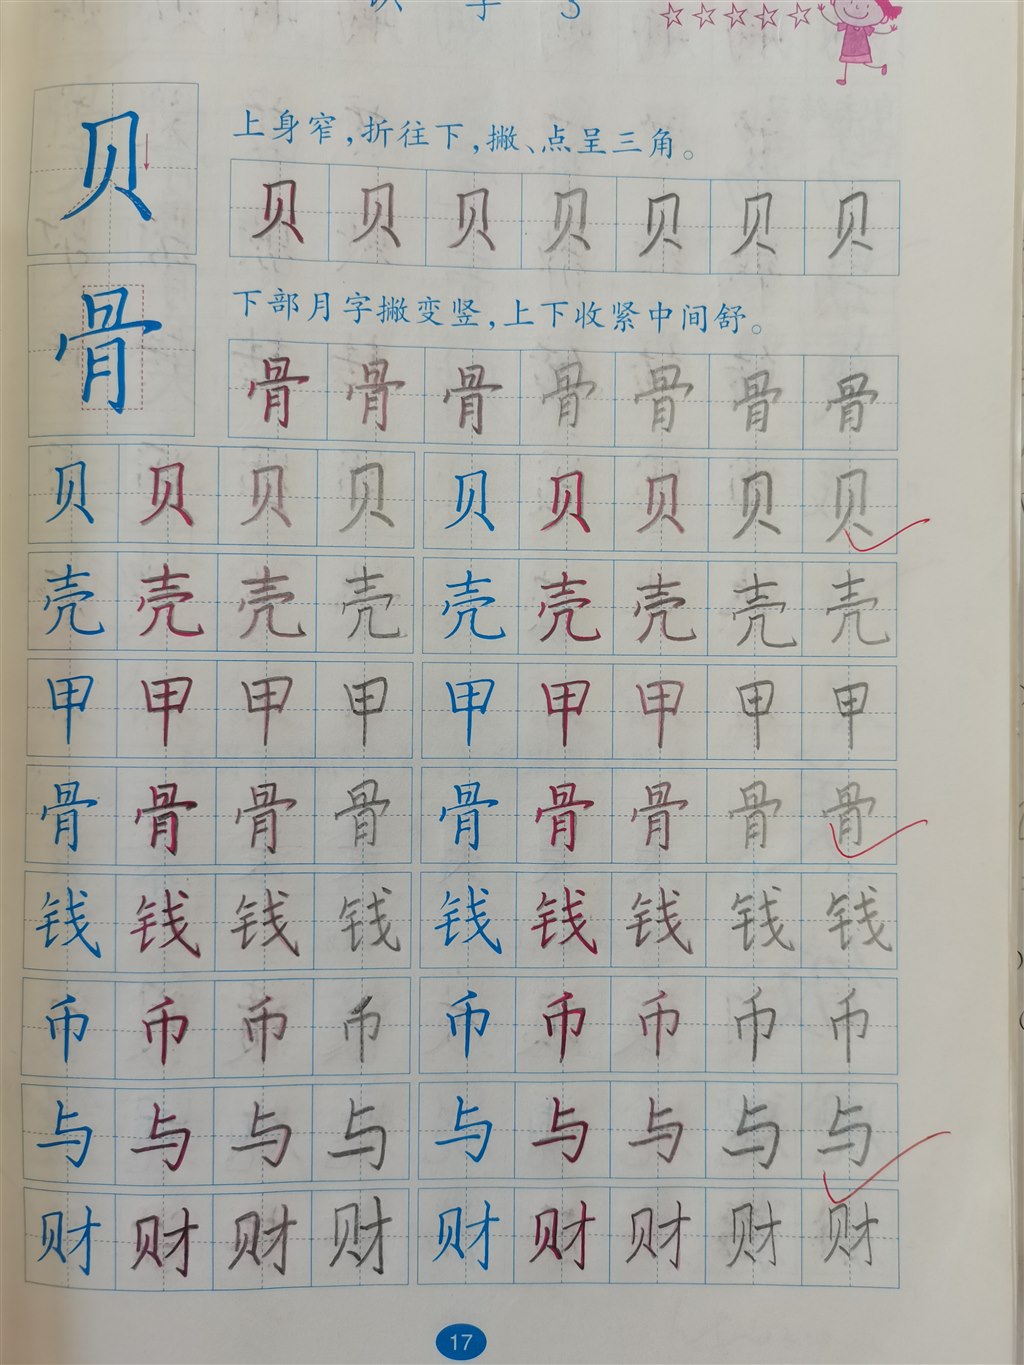 识 字 3
贝
上身窄,折往下,撇、点呈三角。
贝 贝 贝 贝 贝 贝 贝
骨
下部月字撇变竖,上下收紧中间舒。
骨 骨 骨 骨 骨 骨 骨
贝 贝 贝 贝 贝 贝 贝 贝 贝
壳 壳 壳 壳 壳 壳 壳 壳 壳
甲 甲 甲 甲 甲 甲 甲 甲 甲
骨 骨 骨 骨 骨 骨 骨 骨 骨
钱 钱 钱 钱 钱 钱 钱 钱 钱
币 币 币 币 币 币 币 币 币
与 与 与 与 与 与 与 与 与
财 财 财 财 财 财 财 财 财
17